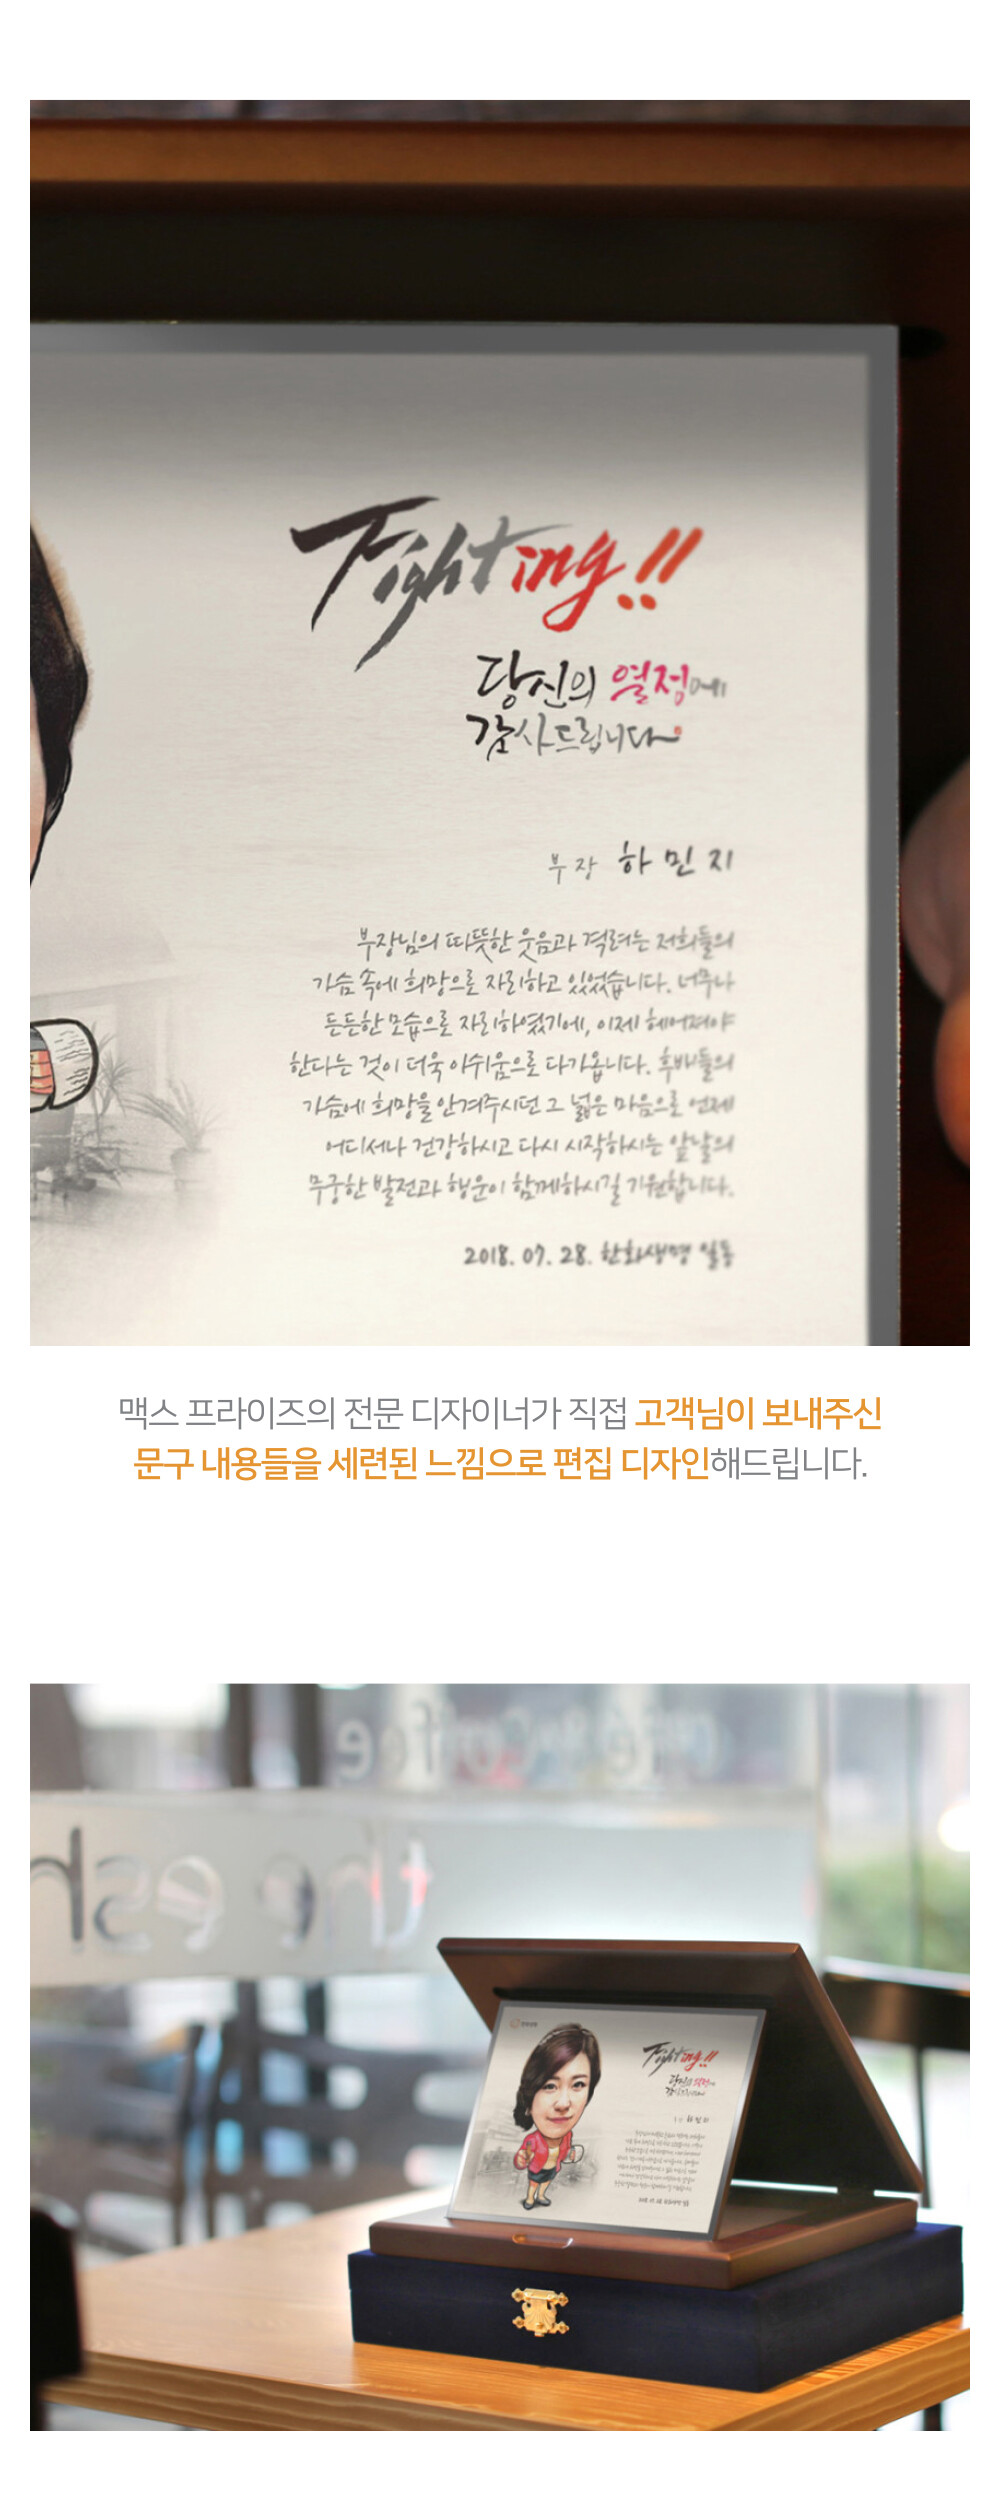 Fighting!!
당신의 열정에
감사드립니다
부장 하민지
부장님의 따뜻한 웃음과 격려는 저희들의
가슴 속에 희망으로 자리하고 있었습니다. 너무나
든든한 모습으로 자리하였기에, 이제 헤어져야
한다는 것이 더욱 아쉬움으로 다가옵니다. 후배들의
가슴에 희망을 안겨주시던 그 넓은 마음으로 언제
어디서나 건강하시고 다시 시작하시는 앞날의
무궁한 발전과 행운이 함께하시길 기원합니다.
2018. 07. 28. 한화생명 일동
맥스 프라이즈의 전문 디자이너가 직접 고객님이 보내주신
문구 내용들을 세련된 느낌으로 편집 디자인해드립니다.
Coffee
the esh
Fighting!!
당신의 열정에
감사드립니다